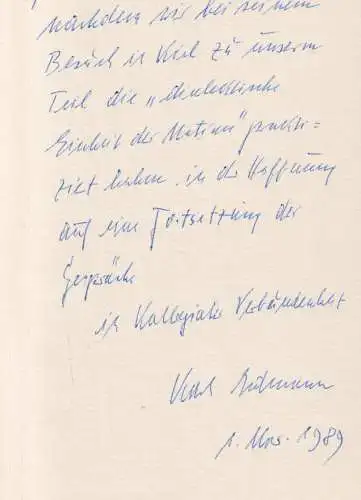 nachdem wir bei seinem
Besuch in Kiel zu unserm
Teil die „dialektische
Einheit der Nation" prakti=
ziert haben, in der Hoffnung
auf eine Fortsetzung der
Gespräche
in Kollegialer Verbundenheit
1. Nov. 1989